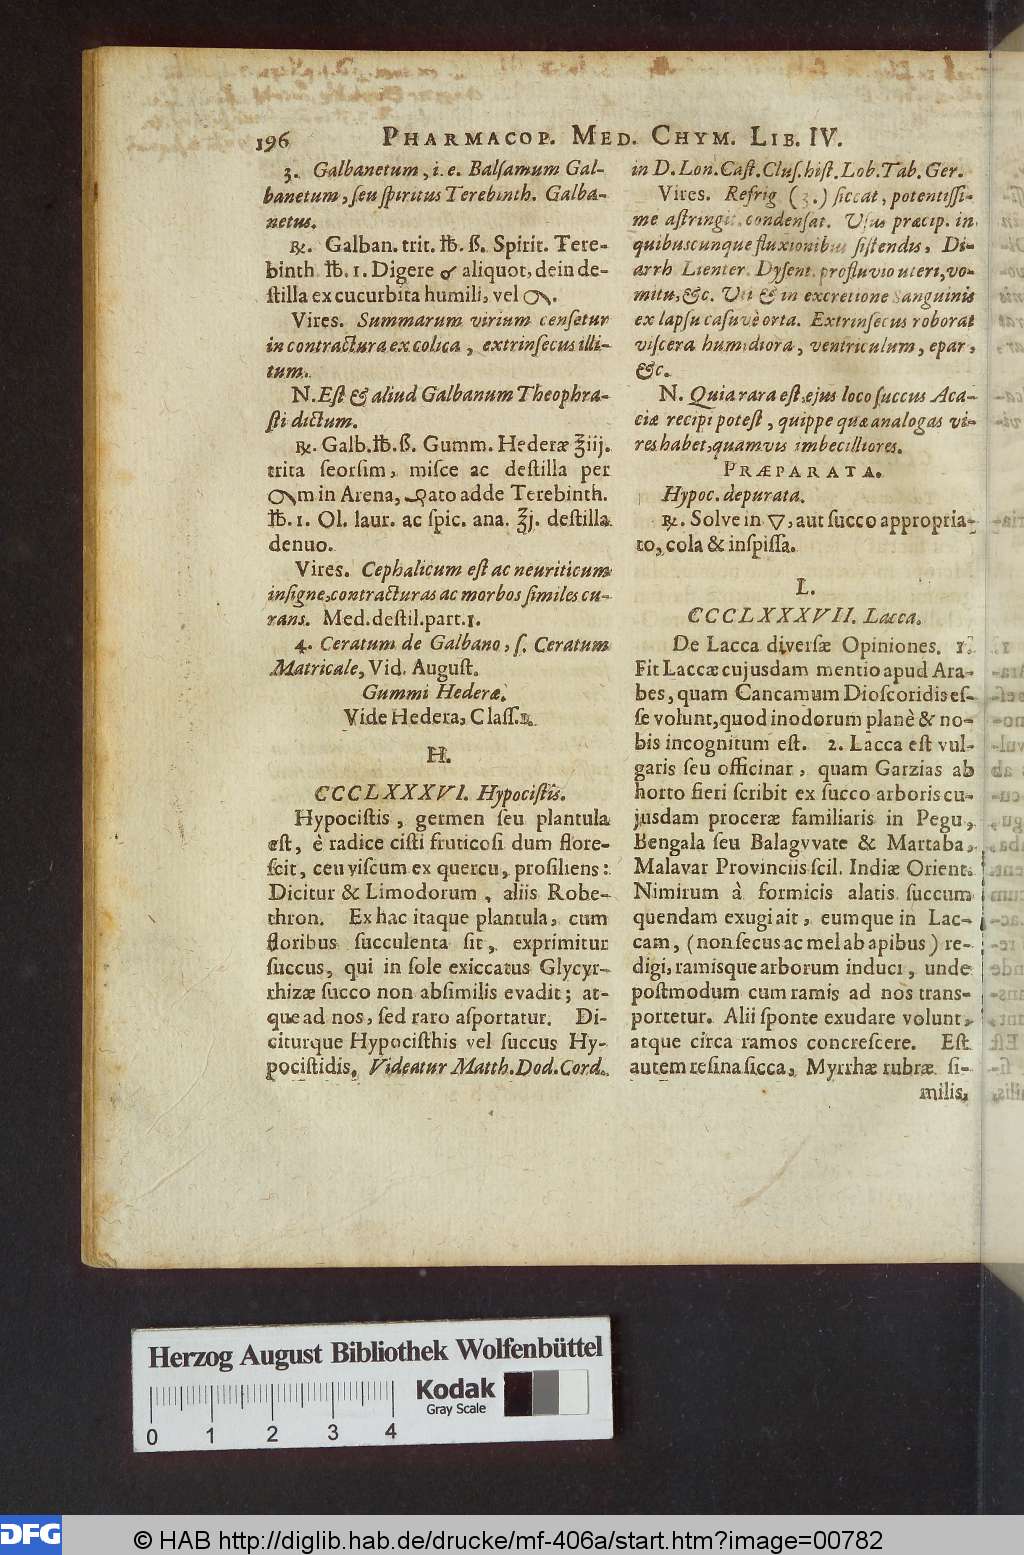 196 PHARMACOP. MED. CHYM. LIB. IV.
3. Galbanetum, i.e. Balſamum Gal-
banetum, ſeu ſpiritus Terebinth. Galba-
netus.
℞. Galban. trit. ℔. ß. Spirit. Tere-
binth. ℔. 1. Digere aliquot, dein de-
ſtilla ex cucurbita humili, vel
Vires. Summarum virium cenſetur
in contractura ex colica, extrinſecus illi-
tum.
N. Eſt & aliud Galbanum Theophra-
ſti dictum.
℞. Galb. ℔. ß. Gumm. Hederæ ℥iij.
trita ſeorſim, miſce ac deſtilla per
m in Arena, ato adde Terebinth.
℔. 1. Ol. laur. ac ſpic. ana. ℥j. deſtilla
denuo.
Vires. Cephalicum eſt ac neuriticum
inſigne, contracturas ac morbos ſimiles cu-
rans. Med. deſtil. part. 1.
4. Ceratum de Galbano, ſ. Ceratum
Matricale, Vid. Auguſt.
Gummi Hederæ.
Vide Hedera, Claſſ.
H.
CCCLXXXVI. Hypociſtis.
Hypociſtis, germen ſeu plantula
eſt, è radice ciſti fruticoſi dum flore-
ſcit, ceu viſcum ex quercu, proſiliens:
Dicitur & Limodorum, aliis Robe-
thron. Ex hac itaque plantula, cum
floribus ſucculenta ſit, exprimitur
ſuccus, qui in ſole exiccatus Glycyr-
rhizæ ſucco non abſimilis evadit; at-
que ad nos, ſed raro aſportatur. Di-
citurque Hypociſthis vel ſuccus Hy-
pociſtidis. Videatur Matth. Dod. Cord.
in D. Lon. Caſt. Cluſ. hiſt. Lob. Tab. Ger.
Vires. Refrig (3.) ſiccat, potentiſſi-
me aſtringit, condenſat. Uſus præcip. in
quibuscunque fluxionibus ſiſtendis, Di-
arrh Lienter. Dyſent. profluvio uteri, vo-
mitu, &c. Uti & in excretione Sanguinis
ex lapſu caſuvè orta. Extrinſecus roborat
viſcera humidiora, ventriculum, epar,
&c.
N. Quia rara eſt, ejus loco ſuccus Aca-
ciæ recipi poteſt, quippe quæ analogas vi-
res habet, quamvis imbecilliores.
PRÆPARATA.
Hypoc. depurata.
℞. Solve in 🜄, aut ſucco appropria-
to, cola & inſpiſſa.
L.
CCCLXXXVII. Lacca.
De Lacca diverſæ Opiniones. 1.
Fit Laccæ cujusdam mentio apud Ara-
bes, quam Cancamum Dioſcoridis eſ-
ſe volunt, quod inodorum planè & no-
bis incognitum eſt. 2. Lacca eſt vul-
garis ſeu officinar, quam Garzias ab
horto fieri ſcribit ex ſucco arboris cu-
jusdam proceræ familiaris in Pegu,
Bengala ſeu Balagvvate & Martaba,
Malavar Provinciis ſcil. Indiæ Orient.
Nimirum à formicis alatis ſuccum
quendam exugi ait, eumque in Lac-
cam, (non ſecus ac mel ab apibus) re-
digi, ramisque arborum induci, unde
poſtmodum cum ramis ad nos trans-
portetur. Alii ſponte exudare volunt,
atque circa ramos concreſcere. Eſt
autem reſina ſicca, Myrrhæ rubræ ſi-
milis,
Herzog August Bibliothek Wolfenbüttel
Kodak
Gray Scale
0 1 2 3 4
DFG © HAB http://diglib.hab.de/drucke/mf-406a/start.htm?image=00782